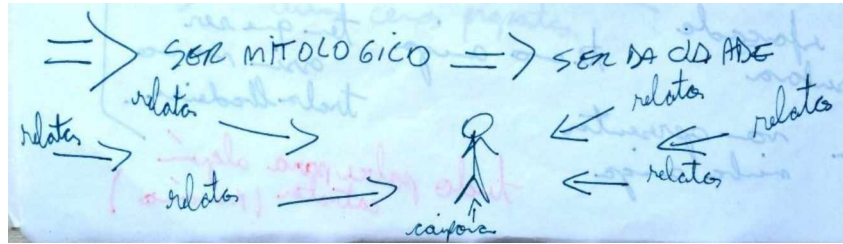 => SER MITOLOGICO => SER DA CIDADE
relatos relatos
relatos relatos
relatos relatos
caipora